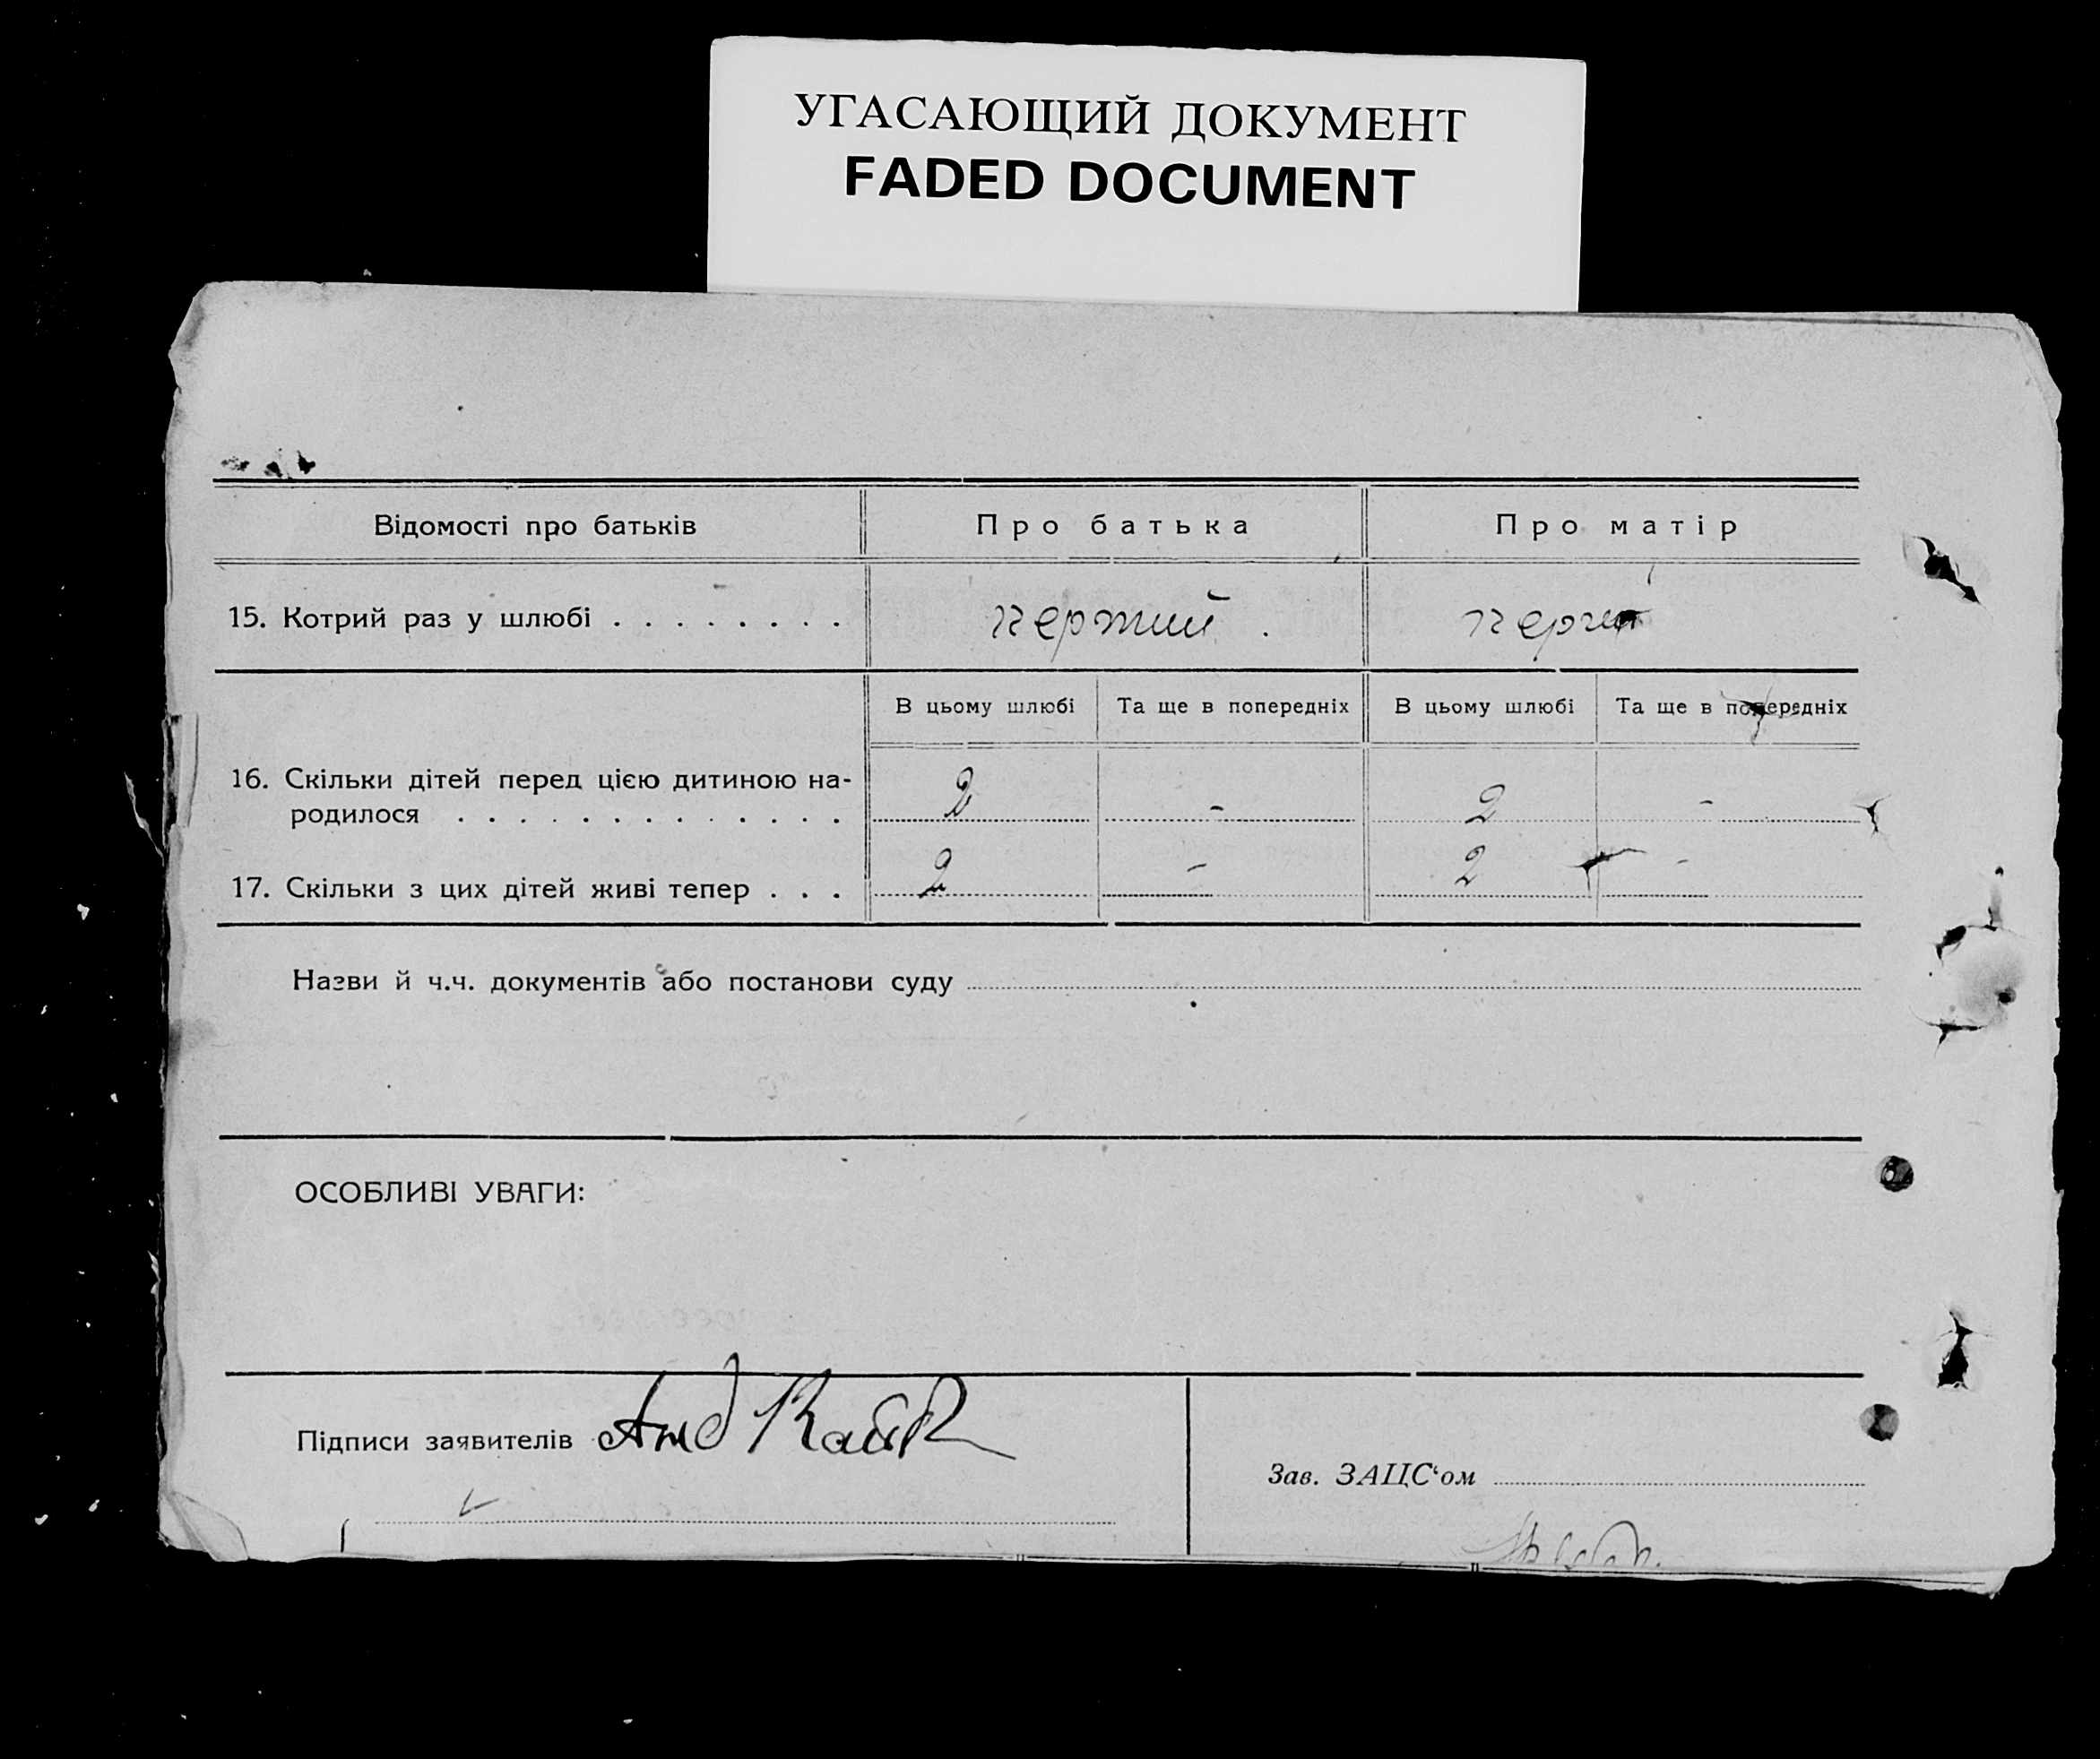 УГАСАЮЩИЙ ДОКУМЕНТ
FADED DOCUMENT
Відомості про батьків
Про батька
Про матір
15. Котрий раз у шлюбі . . . . . . . .
В цьому шлюбі
Та ще в попередніх
В цьому шлюбі
Та ще в попередніх
16. Скільки дітей перед цією дитиною на-
родилося . . . . . . . . . . . . .
2 - 2 -
17. Скільки з цих дітей живі тепер . . .
2 - 2 -
Назви й ч.ч. документів або постанови суду
ОСОБЛИВІ УВАГИ:
Підписи заявителів
Зав. ЗАЦС‘ом